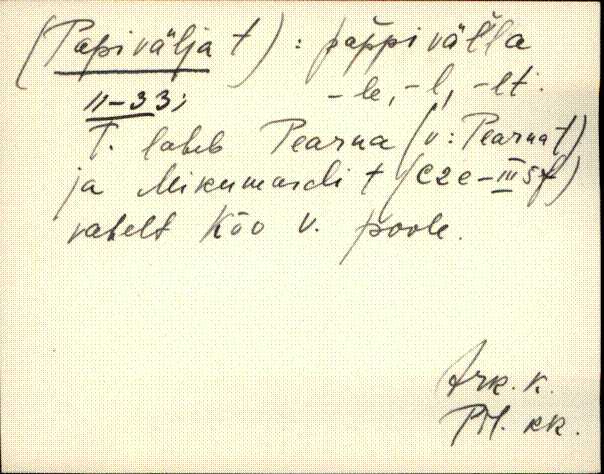 (Papivälja t) : pàppiväĺĺa
-le, -l, -lt.
11-33;
T. läheb Pearna (v: Pearna t)
ja Mikumardi t (C2c-III 5f)
vahelt Kõo v. poole.
Ark. k.
PM. kk.